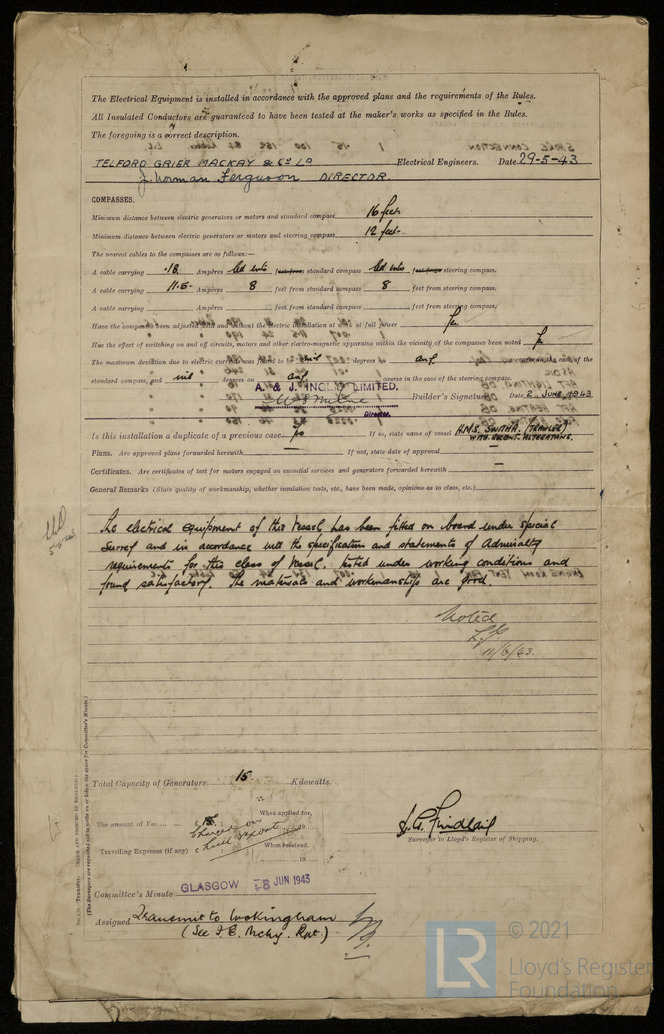 The Electrical Equipment is installed in accordance with the approved plans and the requirements of the Rules.
All Insulated Conductors are guaranteed to have been tested at the maker's works as specified in the Rules.
The foregoing is a correct description.
TELFORD GRIER MACKAY & Co LD Electrical Engineers. Date 29-5-43
J. Norman Ferguson DIRECTOR
COMPASSES.
Minimum distance between electric generators or motors and standard compass 16 feet
Minimum distance between electric generators or motors and steering compass 12 feet
The nearest cables to the compasses are as follows:—
A cable carrying .18 Ampères led into feet from standard compass led into feet from steering compass.
A cable carrying 11.5 Ampères 8 feet from standard compass 8 feet from steering compass.
A cable carrying Ampères feet from standard compass feet from steering compass.
Have the compasses been adjusted with and without the electric installation at work at full power Yes
Has the effect of switching on and off circuits, motors and other electro-magnetic apparatus within the vicinity of the compasses been noted Yes
The maximum deviation due to electric currents was found to be nil degrees on any course in the case of the
standard compass, and nil degrees on any course in the case of the steering compass.
A. & J. INGLIS LIMITED.
Builder's Signature. Date 2 June 1943
Director.
Is this installation a duplicate of a previous case Yes If so, state name of vessel H.M.S. SWITHA. (TRAWLER)
WITH RECENT ALTERATIONS.
Plans. Are approved plans forwarded herewith — If not, state date of approval —
Certificates. Are certificates of test for motors engaged on essential services and generators forwarded herewith —
General Remarks (State quality of workmanship, whether insulation tests, etc., have been made, opinions as to class, etc.)
The electrical equipment of this Vessel has been fitted on board under special
survey and in accordance with the specification and statements of Admiralty
requirements for this class of Vessel, tested under working conditions and
found satisfactory. The materials and workmanship are good.
Noted
11/6/43.
Total Capacity of Generators 15 Kilowatts.
The amount of Fee £ 15 When applied for,
Charged on 19
Hull account
Travelling Expenses (if any) £ When received,
19
J. A. Findlail
Surveyor to Lloyd's Register of Shipping.
Committee's Minute GLASGOW 8 JUN 1943
Assigned Transmit to Wokingham
(See F.E. Mchy. Rpt.)
(The Surveyors are requested not to write on or below the space for Committee's Minute.)
© 2021
LR
Lloyd's Register
Foundation